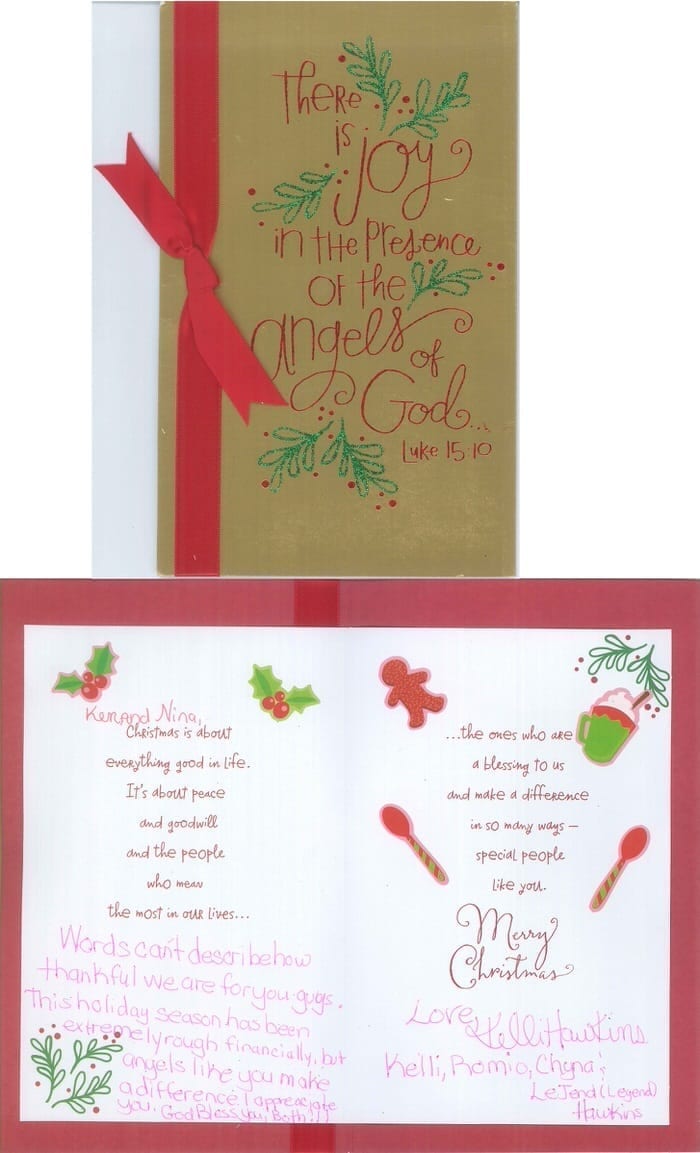 There
is joy
in the presence
of the
angels of
God...
Luke 15:10
Ken and Nina,
Christmas is about
everything good in life.
It's about peace
and goodwill
and the people
who mean
the most in our lives...
Words can't describe how
thankful we are for you guys.
This holiday season has been
extremely rough financially, but
angels like you make
a difference. I appreciate
you. God Bless you, Both!!
...the ones who are
a blessing to us
and make a difference
in so many ways –
special people
like you.
Merry
Christmas
Love,
Kelli Hawkins
Kelli, Romio, Chyna &
LeJend (Legend)
Hawkins